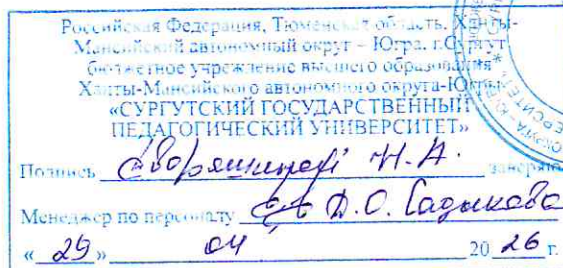 Российская Федерация, Тюменская область, Ханты-
Мансийский автономный округ – Югра, г.Сургут
бюджетное учреждение высшего образования
Ханты-Мансийского автономного округа-Югры
«СУРГУТСКИЙ ГОСУДАРСТВЕННЫЙ
ПЕДАГОГИЧЕСКИЙ УНИВЕРСИТЕТ»
Подпись Н.А. заверяю
Менеджер по персоналу Д.О. Садыкова
« 29 » 04 20 26 г.